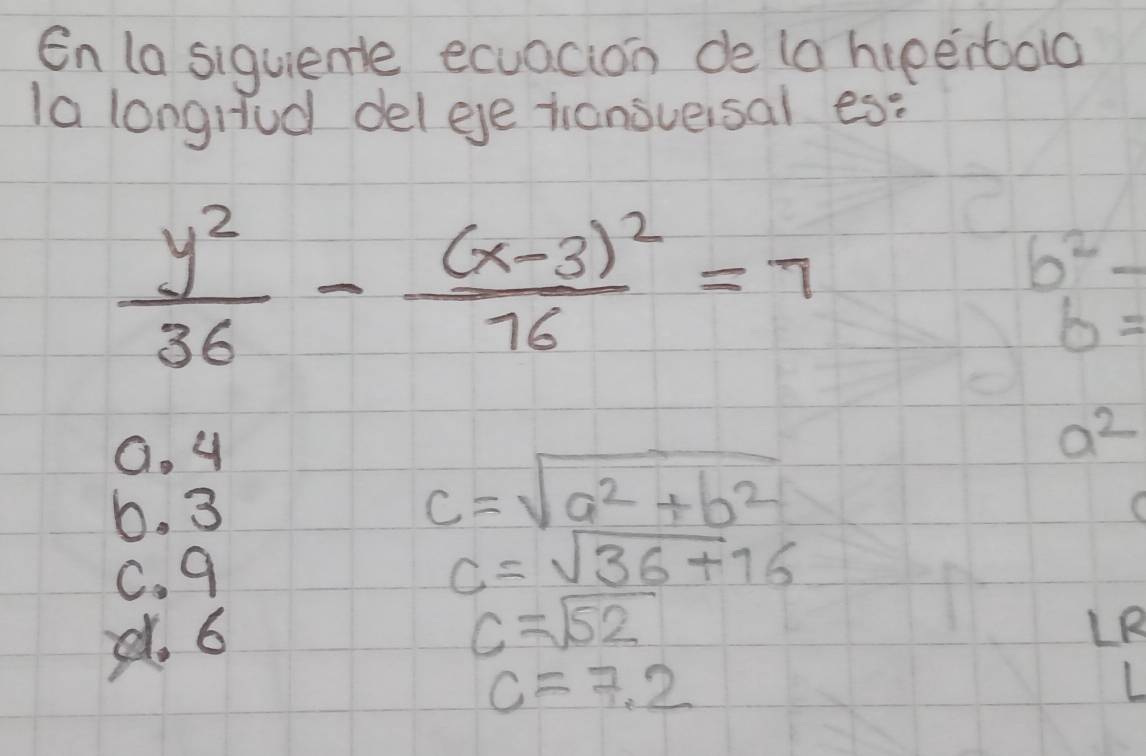 En la siguiente ecuación de la hipérbola
la longitud del eje transversal es:
y²/36 - (x-3)²/16 = 1
b² -
b =
a²
a. 4
b. 3
c. 9
d. 6
c = √a² + b²
c = √36 + 16
c = √52
c = 7.2
LR
L